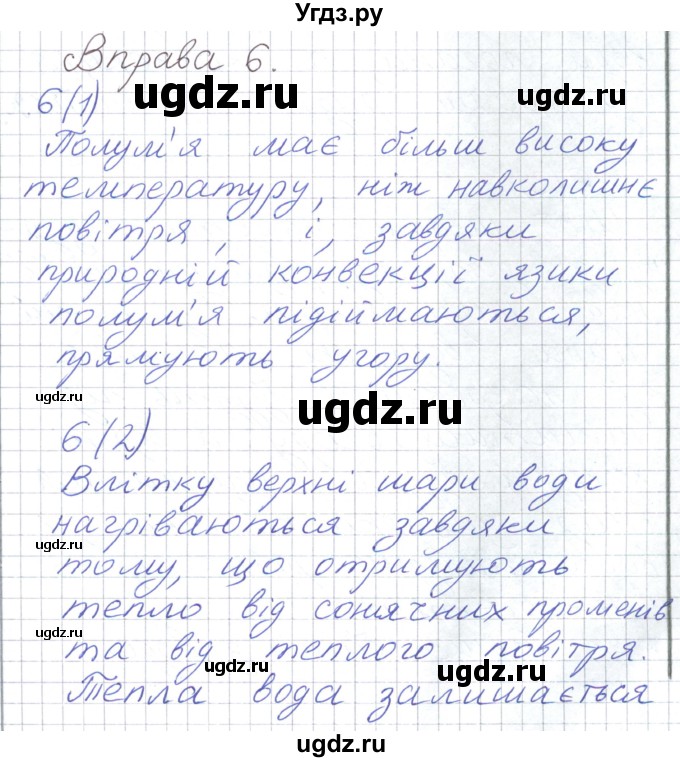 Угдз.ру
Вправа 6.
6(1)
ugdz.ru
Полум'я має більш високу
температуру, ніж навколишнє
повітря, і, завдяки
природній конвекції язики
полум'я підіймаються,
прямують угору.
ugdz.ru
ugdz.ru
6(2)
Влітку верхні шари води
нагріваються завдяки
ugdz.ru
тому, що отримують
тепло від сонячних променів
ugdz.ru
та від теплого повітря.
ugdz.ru
ugdz.ru
Тепла вода залишається
ugdz.ru